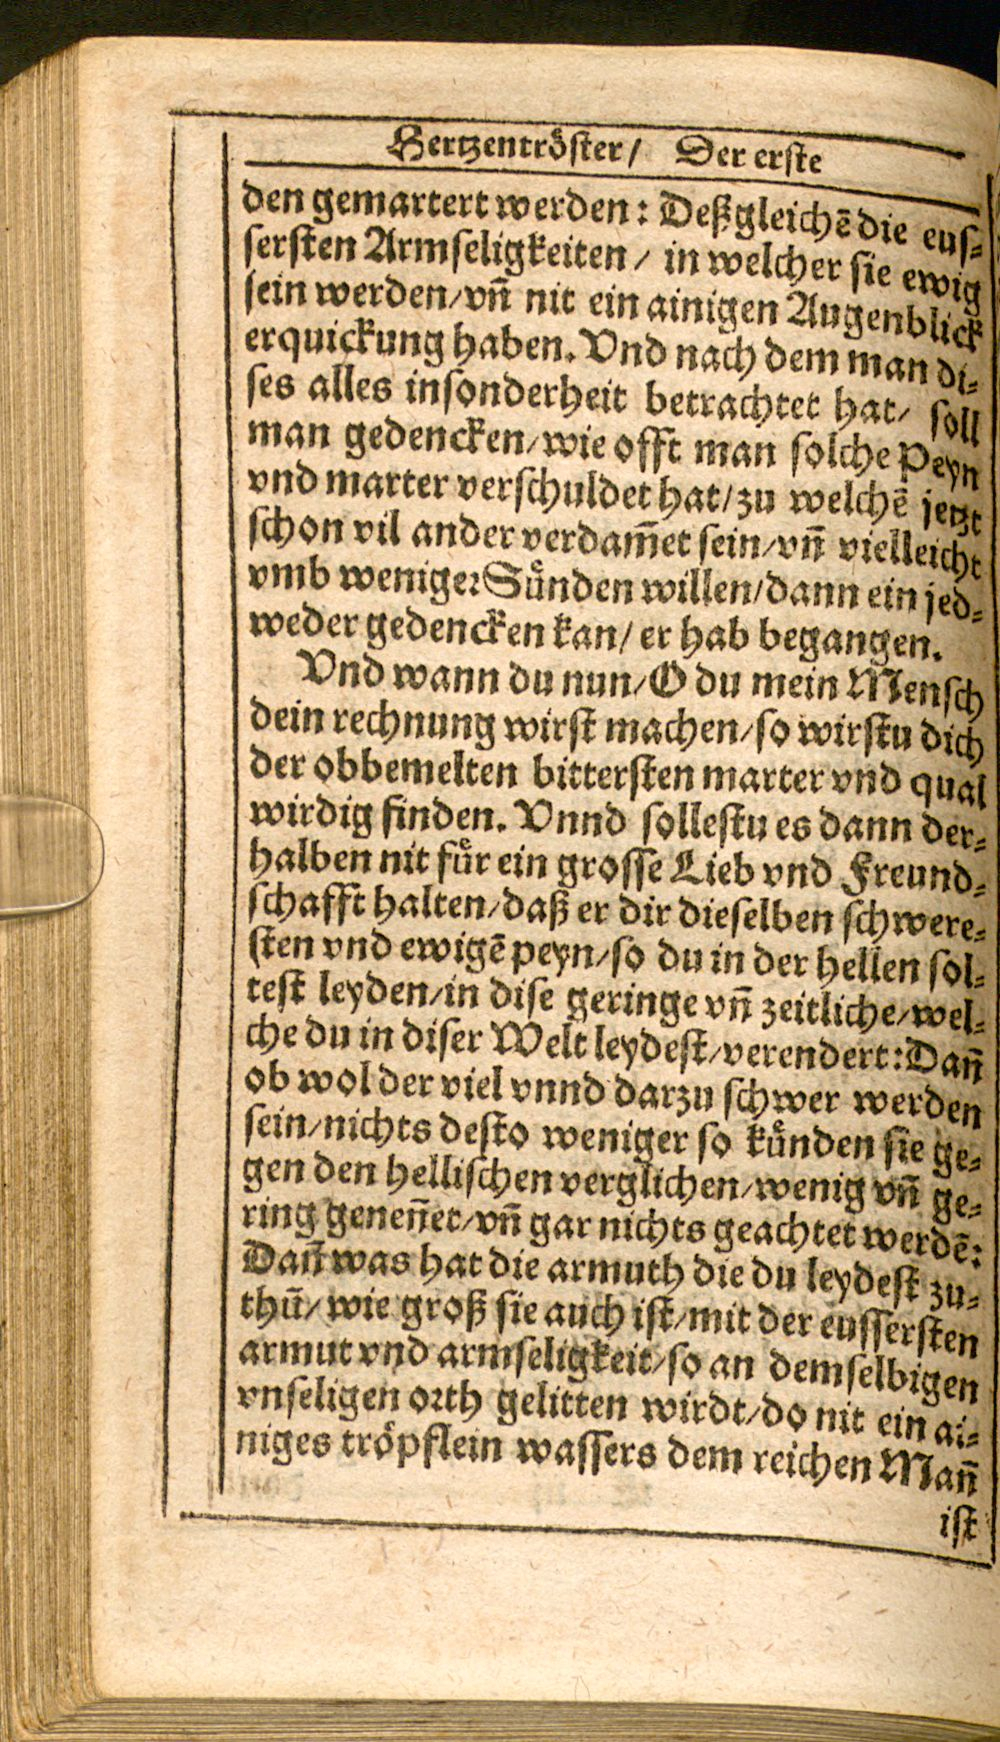 Hertzentröster/ Der erste
den gemartert werden: Deßgleichē die eus⸗
sersten Armseligkeiten/ in welcher sie ewig
sein werden/vn̄ nit ein ainigen Augenblick
erquickung haben. Vnd nach dem man di⸗
ses alles insonderheit betrachtet hat/ soll
man gedencken/wie offt man solche Peyn
vnd marter verschuldet hat/zu welchē jetzt
schon vil ander verdam̄et sein/vn̄ vielleicht
vmb weniger Sünden willen/dann ein jed⸗
weder gedencken kan/er hab begangen.
Vnd wann du nun/O du mein Mensch
dein rechnung wirst machen/so wirstu dich
der obbemelten bittersten marter vnd qual
wirdig finden. Vnnd sollestu es dann der⸗
halben nit für ein grosse Lieb vnd Freund⸗
schafft halten/daß er dir dieselben schwere⸗
sten vnd ewigē peyn/so du in der hellen sol⸗
test leyden/in dise geringe vn̄ zeitliche/wel⸗
che du in diser Welt leydest/verendert: Dan̄
ob wol der viel vnnd darzu schwer werden
sein/nichts desto weniger so künden sie ge⸗
gen den hellischen verglichen/wenig vn̄ ge⸗
ring genen̄et/vn̄ gar nichts geachtet werdē:
Dan̄ was hat die armuth die du leydest zu⸗
thū/wie groß sie auch ist/mit der eussersten
armut vnd armseligkeit/so an demselbigen
vnseligen orth gelitten wirdt/do nit ein ai⸗
niges tröpflein wassers dem reichen Man̄
ist